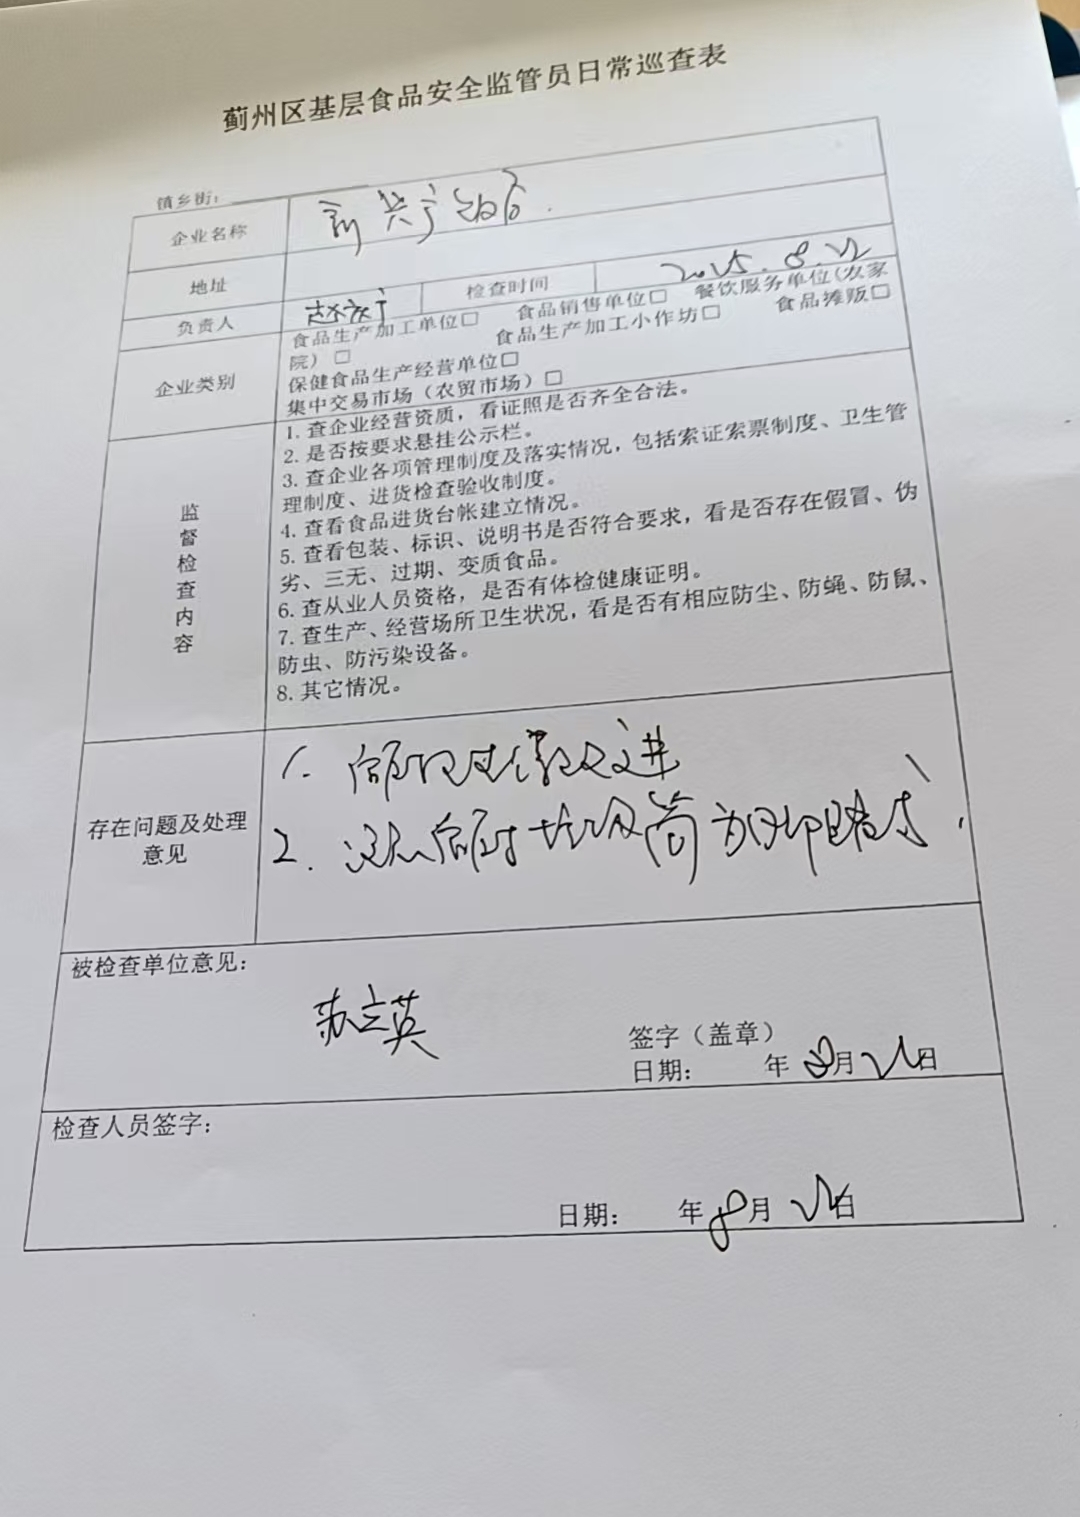 蓟州区基层食品安全监管员日常巡查表
镇乡街：
企业名称
地址
负责人 检查时间 2025.8.22
企业类别
食品生产加工单位□ 食品销售单位□ 餐饮服务单位（农家
院）□ 食品生产加工小作坊□ 食品摊贩□
保健食品生产经营单位□
集中交易市场（农贸市场）□
监督检查内容
1. 查企业经营资质，看证照是否齐全合法。
2. 是否按要求悬挂公示栏。
3. 查企业各项管理制度及落实情况，包括索证索票制度、卫生管
理制度、进货检查验收制度。
4. 查看食品进货台帐建立情况。
5. 查看包装、标识、说明书是否符合要求，看是否存在假冒、伪
劣、三无、过期、变质食品。
6. 查从业人员资格，是否有体检健康证明。
7. 查生产、经营场所卫生状况，看是否有相应防尘、防蝇、防鼠、
防虫、防污染设备。
8. 其它情况。
存在问题及处理
意见
1.
2. 垃圾筒
被检查单位意见：
苏立英
签字（盖章）
日期： 年 8月 日
检查人员签字：
日期： 年 8月 日